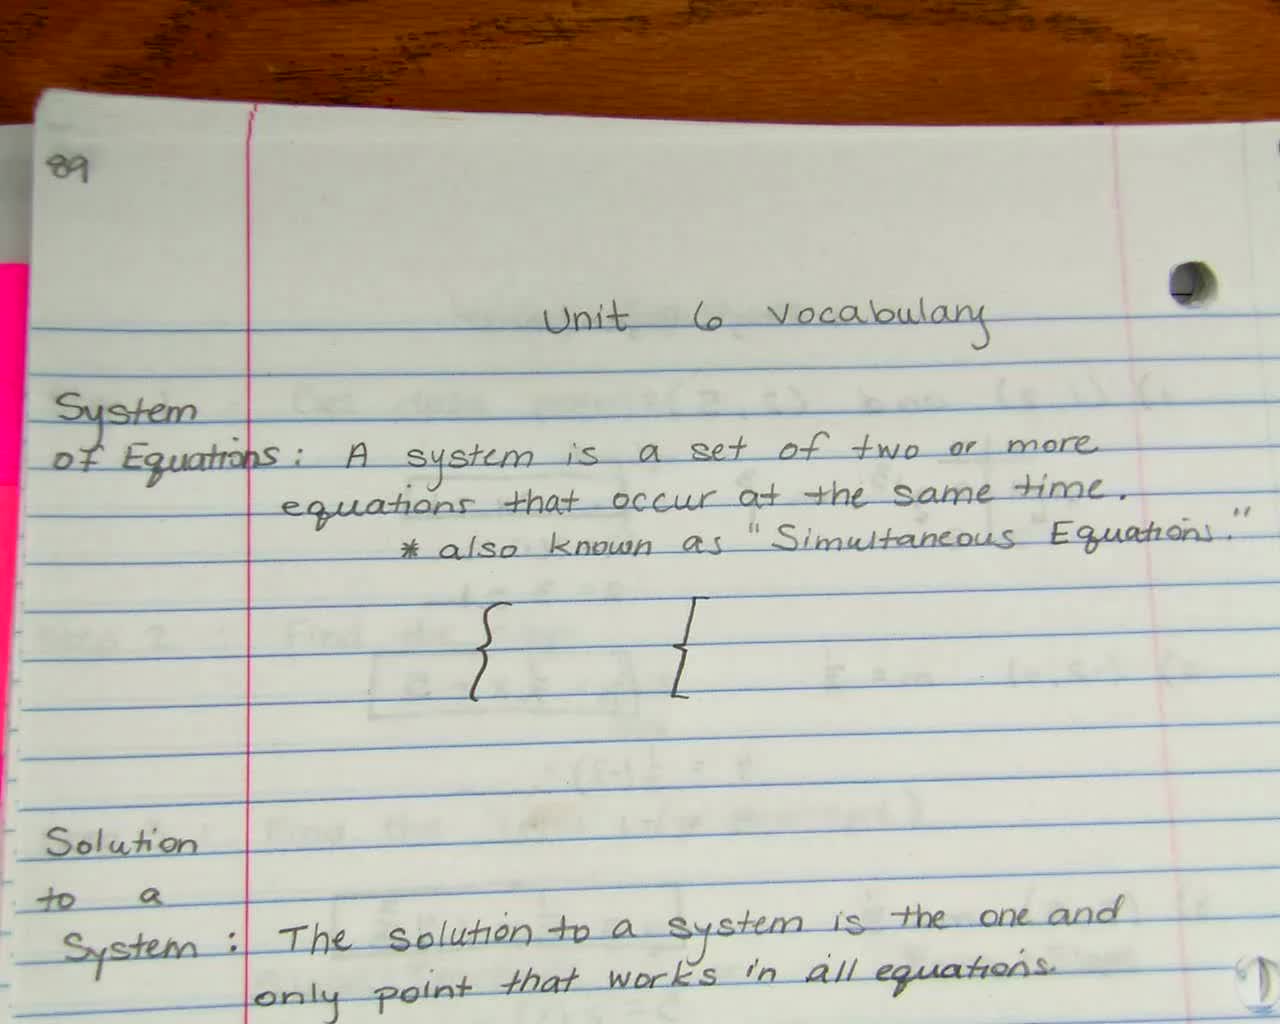 89
Unit 6 Vocabulary
System
of Equations: A system is a set of two or more
equations that occur at the same time.
* also known as "Simultaneous Equations."
{ {
Solution
to a
System: The solution to a system is the one and
only point that works in all equations.